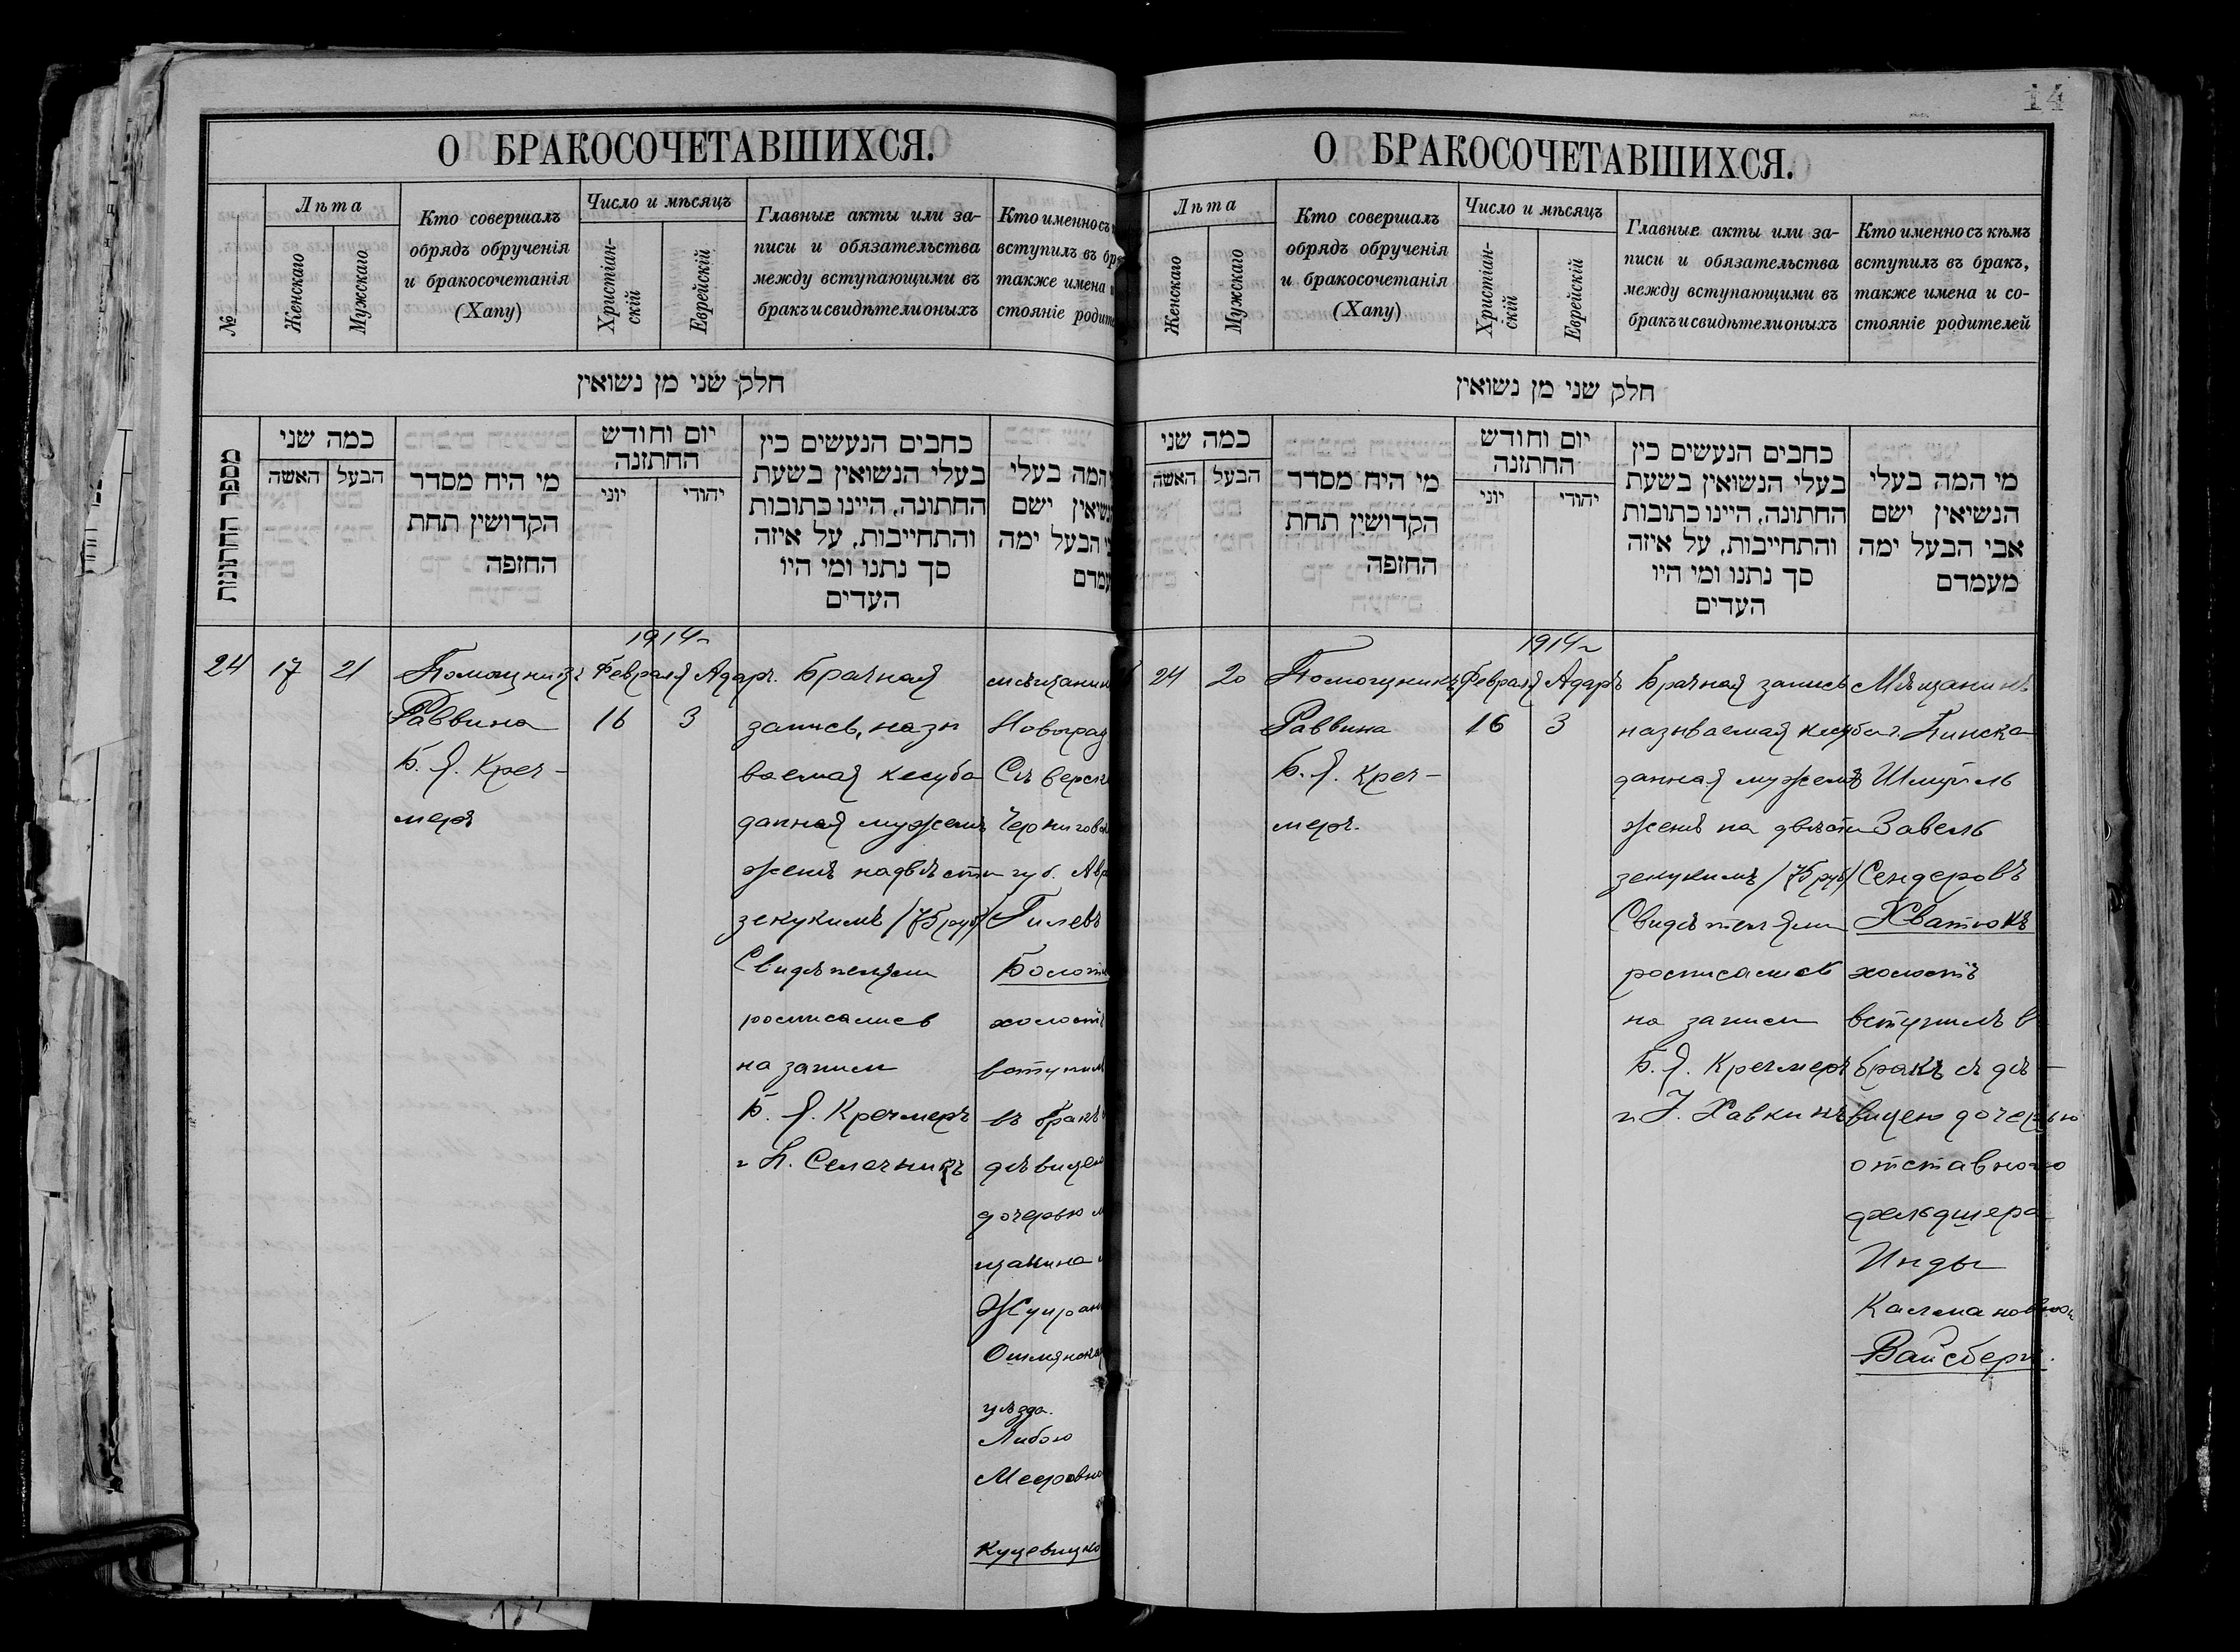 14
О БРАКОСОЧЕТАВШИХСЯ.
№
Лѣта
Женскаго
Мужскаго
Кто совершалъ
обрядъ обрученія
и бракосочетанія
(Хапу)
Число и мѣсяцъ
Христіан-
скій
Еврейскій
Главные акты или за-
писи и обязательства
между вступающими въ
бракъ и свидѣтели оныхъ
Кто именно съ
вступилъ въ бра
также имена и
стояніе родите
חלק שני מן נשואין
מספר החתונות
כמה שני
האשה
הבעל
מי היח מסדר
הקדושין תחת
החזפה
יום וחודש
החתזנה
יוני
יהודי
כחבים הנעשים כין
בעלי הנשואין בשעת
החתונה, היינו כתובות
והתחייבות, על איזה
סך נתנו ומי היו
העדים
המה בעלי
ישם
הבעל ימה
1914 г
24
17
21
Помощникъ
Раввина
Б. Я. Креч-
меръ
Февраля
16
Адаръ.
3
Брачная
запись, назы
ваемая кесуба
данная мужемъ
женѣ на двѣсти
зекукимъ /75 руб/
Свидѣтелями
росписались
на записи
Б. Я. Кречмеръ
и
мѣщанин
Новоград
Сѣверск
Черниговск
губ.
Гилевъ
Болотн
холостъ
вступилъ
въ бракъ
дѣвицею
дочерью м
щанина
Ошмянска
уѣзда.
Либою
Мееровно
Куцевицко
О БРАКОСОЧЕТАВШИХСЯ.
Лѣта
Женскаго
Мужскаго
Кто совершалъ
обрядъ обрученія
и бракосочетанія
(Хапу)
Число и мѣсяцъ
Христіан-
скій
Еврейскій
Главные акты или за-
писи и обязательства
между вступающими въ
бракъ и свидѣтели оныхъ
Кто именно съ кѣмъ
вступилъ въ бракъ,
также имена и со-
стояніе родителей
חלק שני מן נשואין
כמה שני
האשה
הבעל
מי היח מסדר
הקדושין תחת
החזפה
יום וחודש
החתזנה
יוני
יהודי
כחבים הנעשים כין
בעלי הנשואין בשעת
החתונה, היינו כתובות
והתחייבות, על איזה
סך נתנו ומי היו
העדים
מי המה בעלי
הנשיאין ישם
אבי הבעל ימה
מעמדם
1914 г
24
20
Помощникъ
Раввина
Б. Я. Креч-
меръ.
Февраля
16
Адаръ
3
Брачная запись
называемая кесуба
данная мужемъ
женѣ на двѣсти
зекукимъ /75 руб/
Свидѣтелями
росписались
на записи
Б. Я. Кречмеръ
и Хавкинъ
Мѣщанинъ
г. Пинска
Шмуйль
Завель
Сендеровъ
Хватюкъ
холостъ
вступилъ въ
бракъ съ дѣ-
вицею дочерью
отставного
фельдшера
Инды
Калмановною
Вайсбергъ.